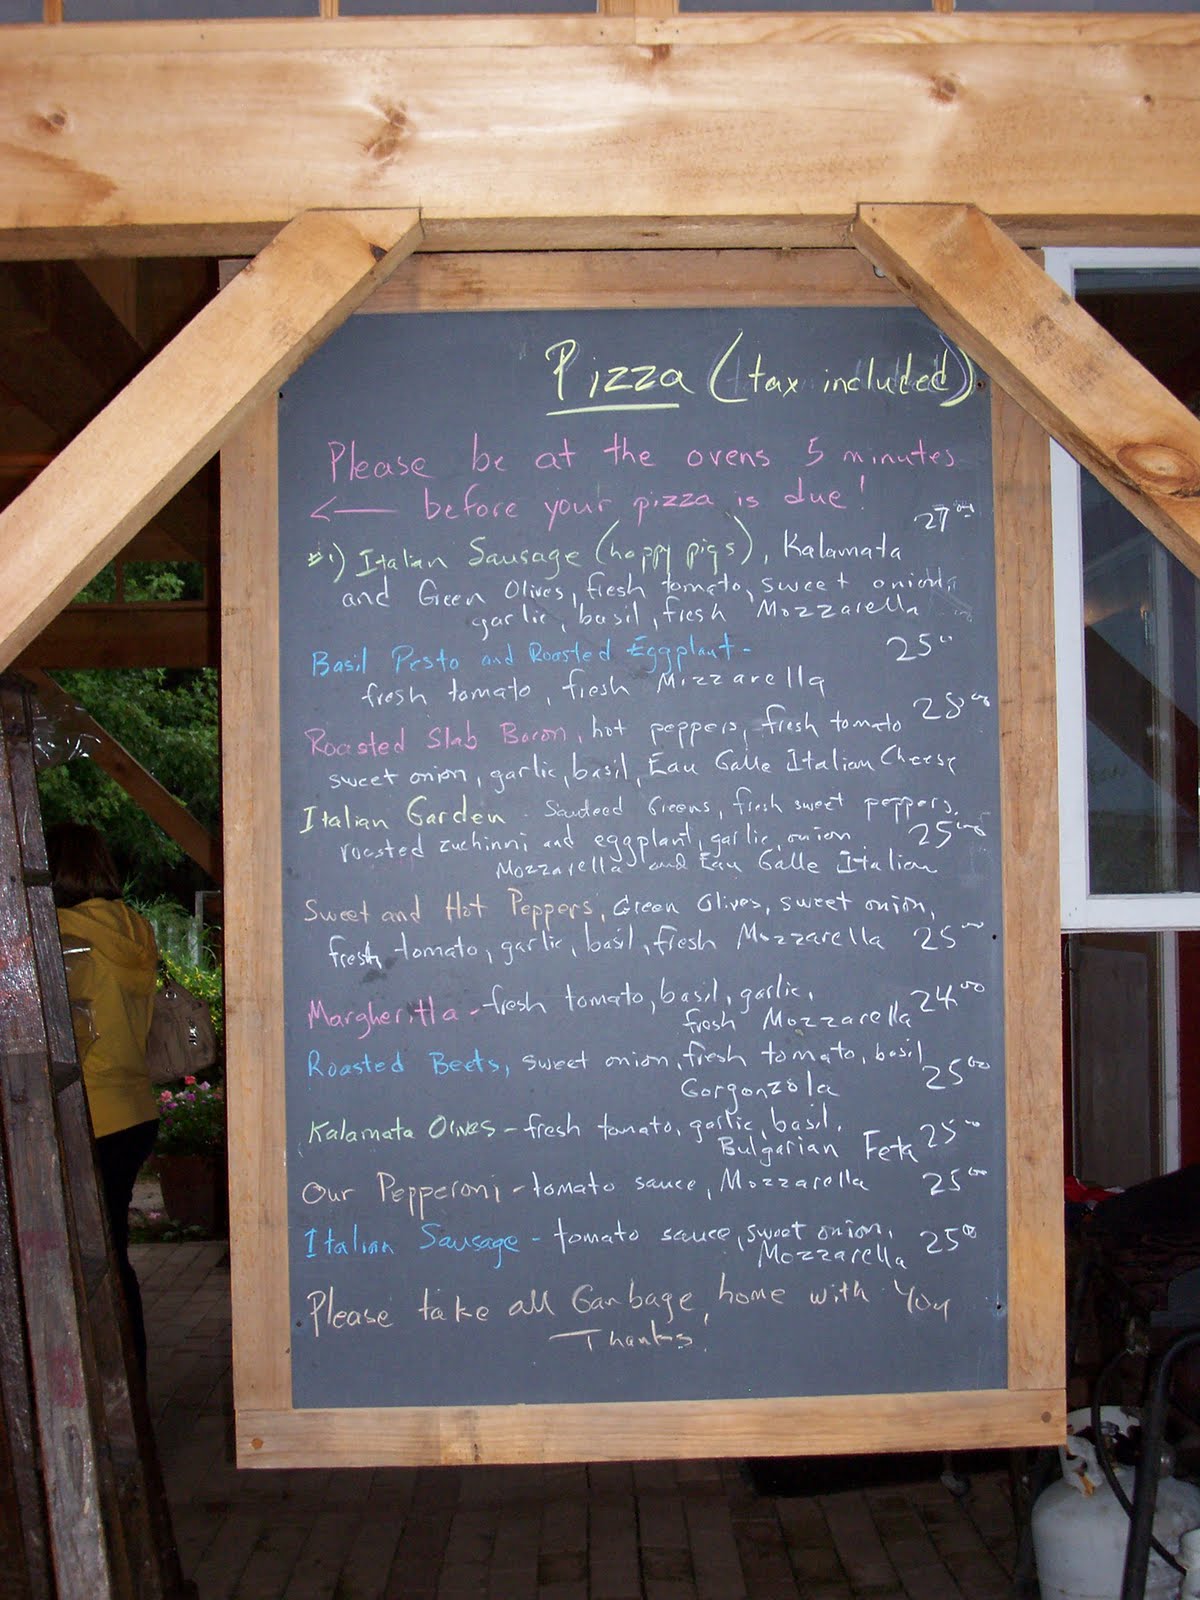 Pizza (tax included)
Please be at the ovens 5 minutes
← before your pizza is due!
27⁰⁰
#1) Italian Sausage (happy pigs), Kalamata
and Green Olives, fresh tomato, sweet onion,
garlic, basil, fresh Mozzarella
Basil Pesto and Roasted Eggplant - 25⁰⁰
fresh tomato, fresh Mizzarella
Roasted Slab Bacon, hot peppers, fresh tomato 28⁰⁰
sweet onion, garlic, basil, Eau Galle Italian Cheese
Italian Garden - Sauteed Greens, fresh sweet peppers,
roasted zuchinni and eggplant, garlic, onion 25⁰⁰
Mozzarella and Eau Galle Italian
Sweet and Hot Peppers, Green Olives, sweet onion,
fresh tomato, garlic, basil, fresh Mozzarella 25⁰⁰
Margheritta - fresh tomato, basil, garlic, 24⁰⁰
fresh Mozzarella
Roasted Beets, sweet onion, fresh tomato, basil
Gorgonzola 25⁰⁰
Kalamata Olives - fresh tomato, garlic, basil,
Bulgarian Feta 25⁰⁰
Our Pepperoni - tomato sauce, Mozzarella 25⁰⁰
Italian Sausage - tomato sauce, sweet onion, 25⁰⁰
Mozzarella
Please take all Garbage home with You
Thanks!